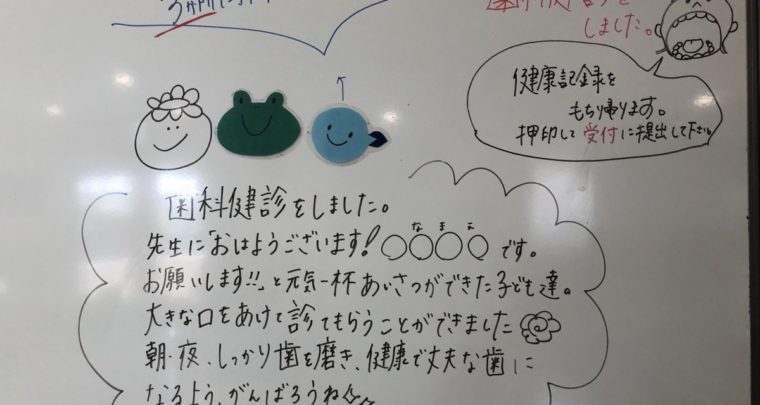 しました。
健康記録を
もち帰ります。
押印して受付に提出して下さい
歯科健診をしました。
先生に「おはようございます!〇〇〇〇です。
なまえ
お願いします!!」と元気一杯あいさつができた子ども達。
大きな口をあけて診てもらうことができました
朝・夜、しっかり歯を磨き、健康で丈夫な歯に
なるよう、がんばろうね